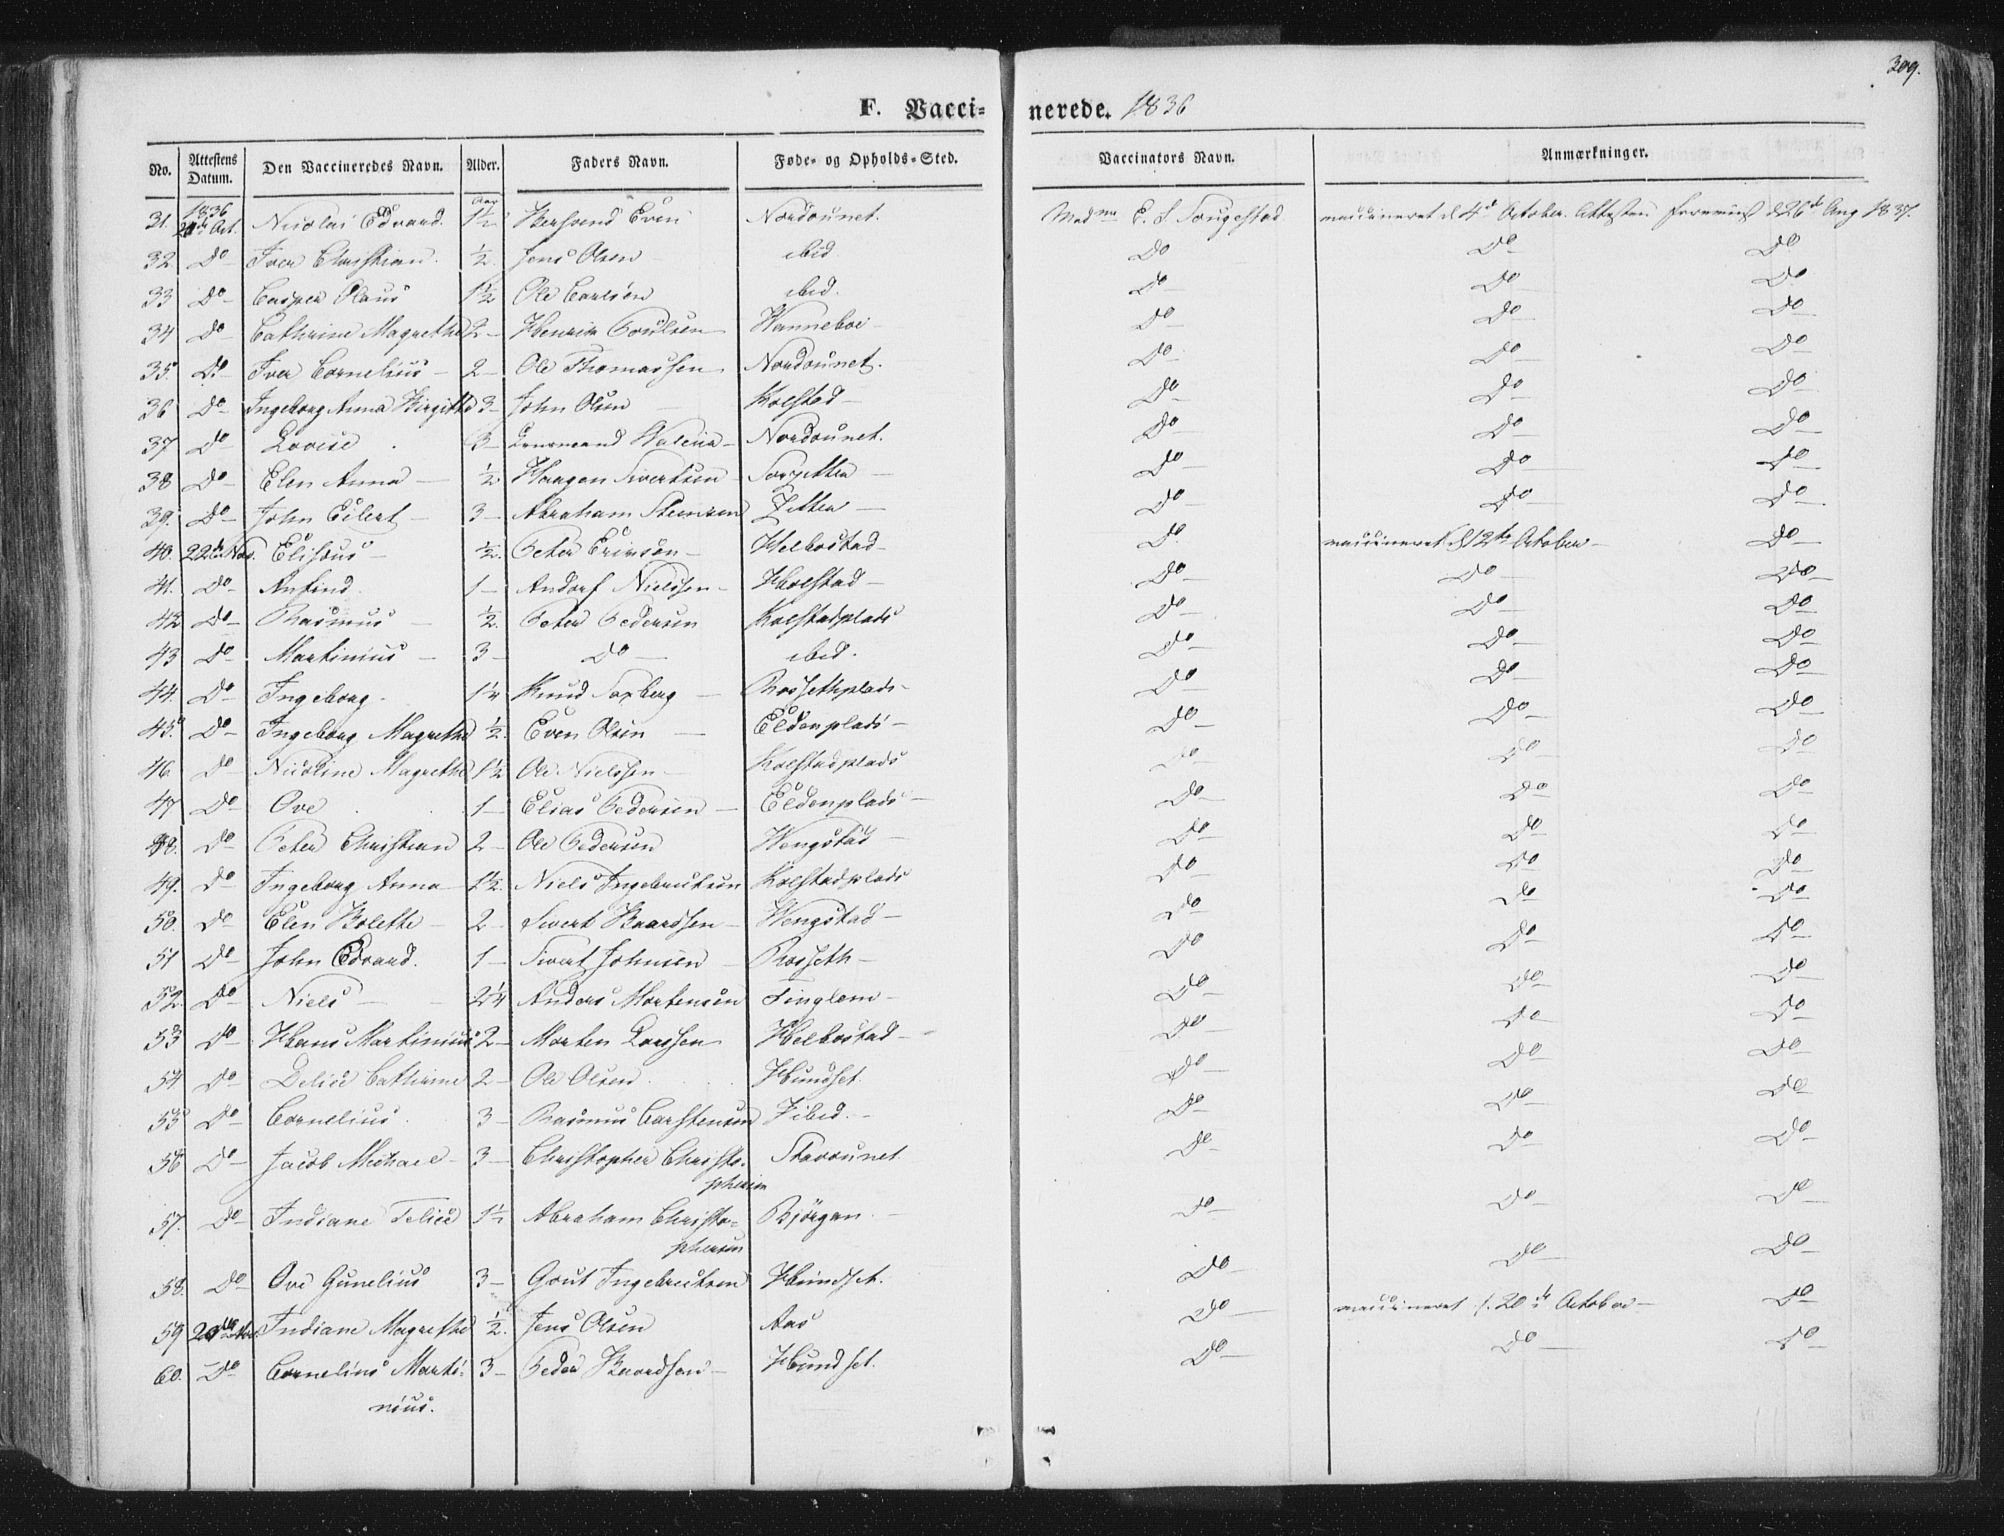 309.
F. Vaccinerede. 1836
No. Attestens Datum. Den Vaccineredes Navn. Alder. Faders Navn. Føde- og Opholds-Sted. Vaccinators Navn. Anmærkninger.
1836 Aar
31. Oct. Nicolai Edvard. 1½ Even Nordvunet. E. S. vaccineret d 4de October. Attesten d 26de Aug 1837.
32 Do Iver Christian. ½ Jens Olsen ibid Do Do Do
33 Do Casper Olaus 1½ Ole Carlsen ibid. Do Do Do
34 Do Cathrine Magrethe 2 Henrik Poulsen Wanneboe Do Do Do
35. Do Iver Cornelius 2 Ole Thomassen Nordvunet. Do Do Do
36 Do Ingeborg Anna Birgitte 3 John Olsen Kolstad Do Do Do
37 Do Lovise 3 Lensmand Nordvunet. Do Do Do
38 Do Elen Anna ½ Haagen Sivertsen Do Do Do
39. Do John Eilert 3 Abraham Do Do Do
40. 22de Nov. Elisæus ½ Peter Ericsen Helbostad Do vaccineret d 12te October Do
41. Do Anfind. 1 Andorf Nielssen Holstad Do Do Do
42 Do Rasmus ½ Peter Pedersen Kolstadplads Do Do Do
43 Do Martinius 3 Do ibid. Do Do Do
44. Do Ingeborg. Knud Rossethplads Do Do Do
45. Do Ingeborg Magrethe ½ Even Olsen Eldenplads Do Do Do
46 Do Nicoline Magrethe 1½ Ole Nielssen Kolstadplads Do Do Do
47 Do Ove 1 Elias Pedersen Eldenplads Do Do Do
48. Do Peter Christian 2 Ole Pedersen Wengstad Do Do Do
49. Do Ingeborg Anna 1½ Niels Ingebrictsen Kolstadplads Do Do Do
50. Do Elen Bolette 2 Sivert Baardsen Wengstad Do Do Do
51 Do John Edvard. 1 Sivert Johnsen Rosseth Do Do Do
52. Do Niels 2¼ Anders Mortensen Tinglem Do Do Do
53 Do Hans Martinius 2 Morten Larssen Helbostad Do Do Do
54 Do Cathrine 2 Ole Olsen Hundset. Do Do Do
55 Do Cornelius. 3 Rasmus Carstensen ibid. Do Do Do
56 Do Jacob Michael 3 Christopher Christo- Do Do Do
phersen
57. Do Indiane Felice 1½ Abraham Christo- Bjørgan Do Do Do
phersen
58. Do Ove Gunelius 3 Ingebrictsen Hundset. Do Do Do
59 Indiane Magrethe ½ Jens Olsen Aas Do vaccineret d. 20de October Do
60. Do Cornelius Marti- 3 Peder Baardsen Hundset. Do Do Do
nius.